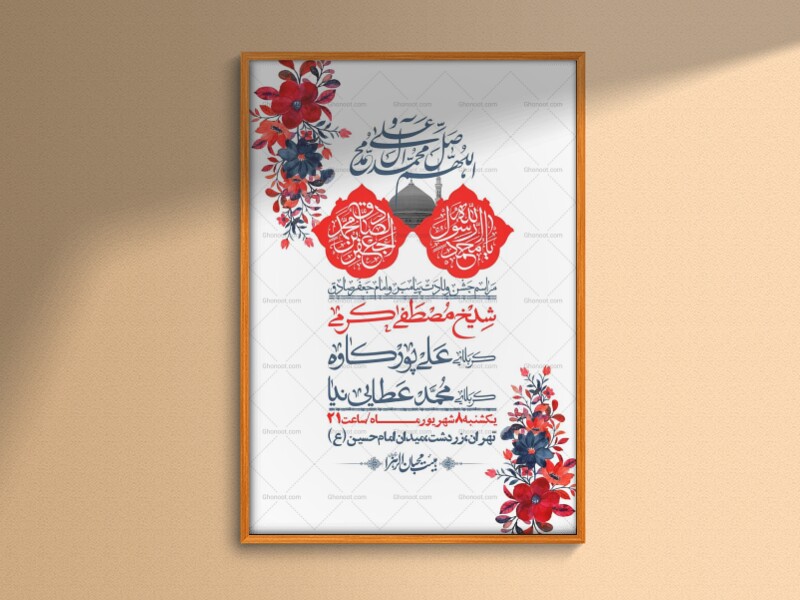 اللهم صل علی محمد و آل محمد
یا محمد رسول الله
جعفر بن محمد الصادق
مراسم جشن ولادت پیامبر و امام جعفر صادق
شیخ مصطفی کرمی
کربلایی علی پورکاوه
کربلایی محمد عطایی نیا
یکشنبه ۸ شهریور ماه / ساعت ۲۱
تهران، زردشت، میدان امام حسین (ع)
هیئت محبان الزهرا
Ghonoot.com